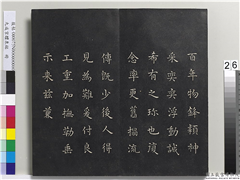 百年物鋒穎神
采奕奕浮動誠
希有之珎也復
念率更舊搨流
傳既少後人得
見為難爰付良
工重加撫勒垂
示来茲
26